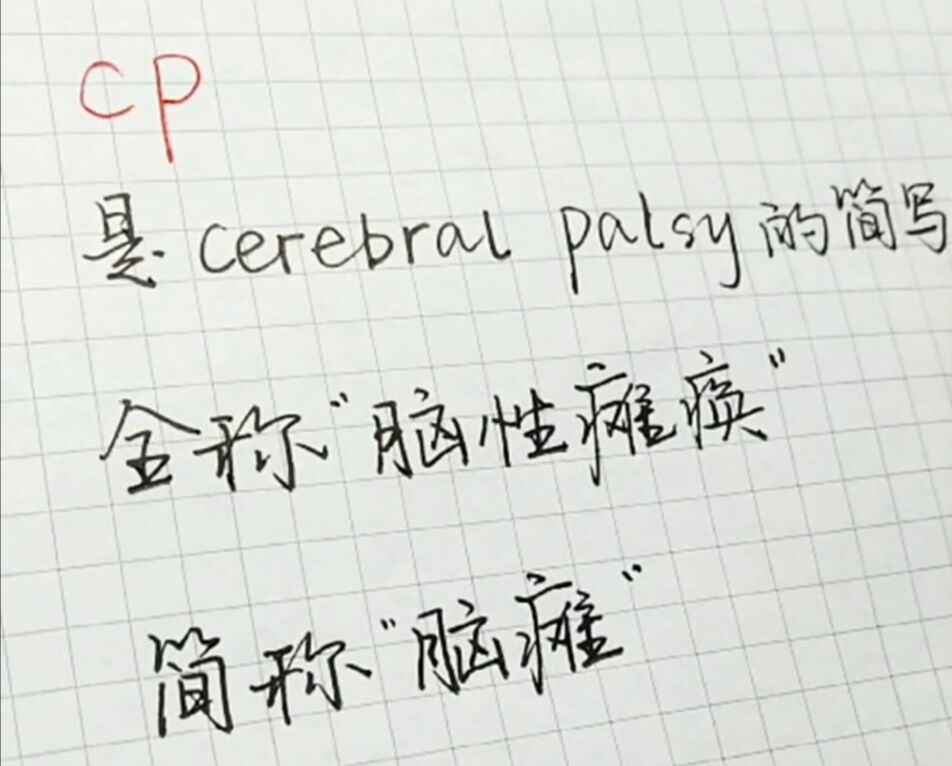 cp
是cerebral palsy的简写
全称"脑性瘫痪"
简称"脑瘫"